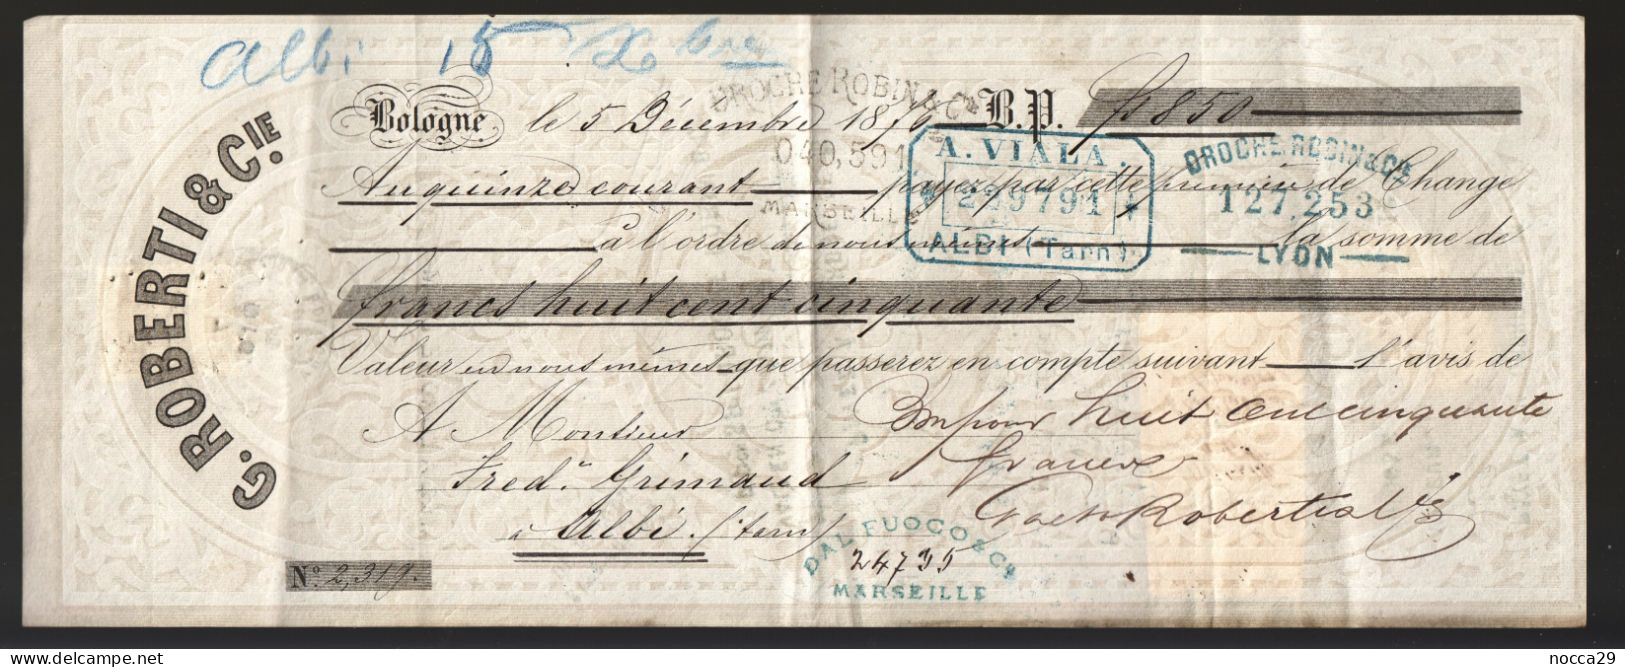 Albi 15
G. ROBERTI & CIE.
Bologne le 5 Décembre 1876 B.P. fr 850
DROCHE ROBIN & Cie
040,591
MARSEILLE
A. VIALA.
239791
ALBI (Tarn)
DROCHE, ROBIN & Cie
127,253
LYON
Au quinze courant payez par cette première de Change
à l'ordre de nous mêmes la somme de
francs huit cent cinquante
Valeur en nous mêmes que passerez en compte suivant l'avis de
A Monsieur
Fredc. Grimaud
à Albi (Tarn)
Bon pour huit cent cinquante
francs
Roberti & Cie
DAL FUOCO & Cie
24735
MARSEILLE
No. 2,319.
delcampe.net
nocca29